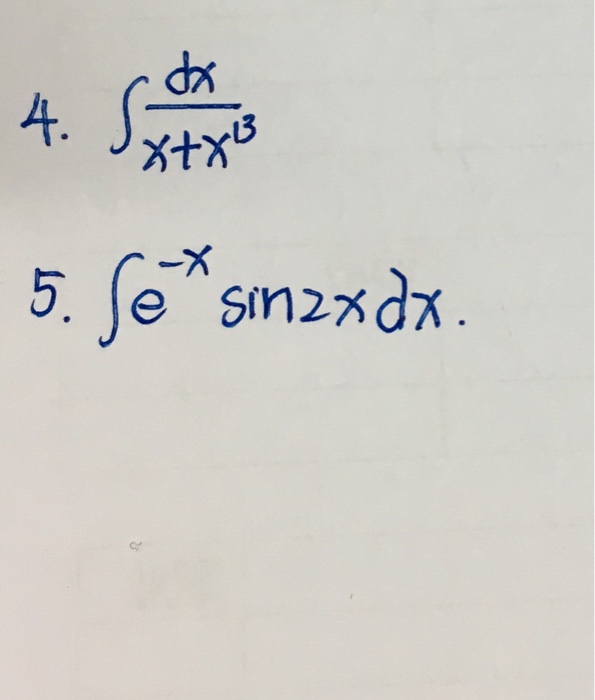 4. ∫ dx/(x+x¹³)
5. ∫e⁻ˣ sin2xdx.